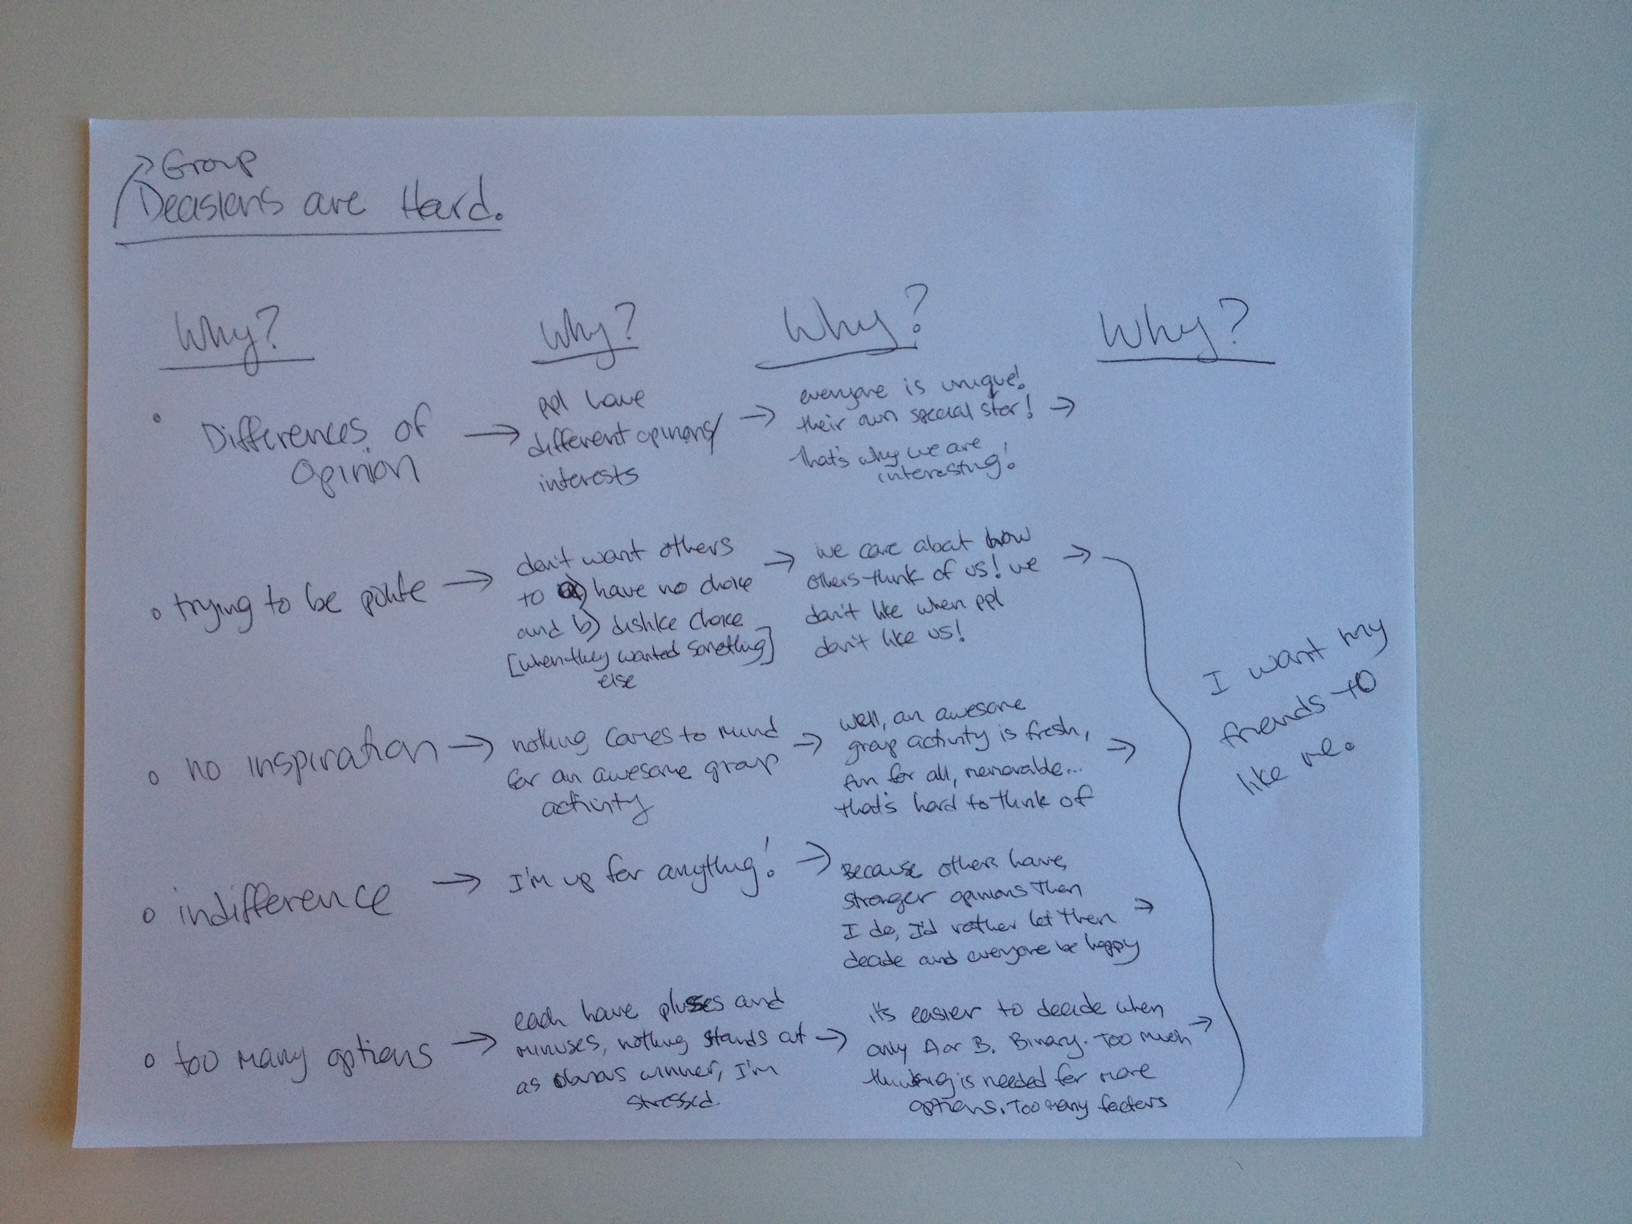 Group
Decisions are Hard.
Why?
Why?
Why?
Why?
• Differences of
Opinion
→
ppl have
different opinions
interests
→
everyone is unique!
their own special star! →
that's why we are
interesting!
• trying to be polite →
don't want others
to a) have no choice
and b) dislike choice
[when they wanted something]
else
→
we care about how
others think of us! we →
don't like when ppl
don't like us!
• no inspiration →
nothing comes to mind
for an awesome group
activity
→
well, an awesome
group activity is fresh, →
fun for all, memorable...
that's hard to think of
• indifference →
I'm up for anything! →
because others have,
stronger opinions than
I do, I'd rather let them →
decide and everyone be happy
• too many options →
each have plusses and
minuses, nothing stands at →
as obvious winner, I'm
stressed.
its easier to decide when
only A or B. Binary. Too much →
thinking is needed for more
options. Too many factors
I want my
friends to
like me.